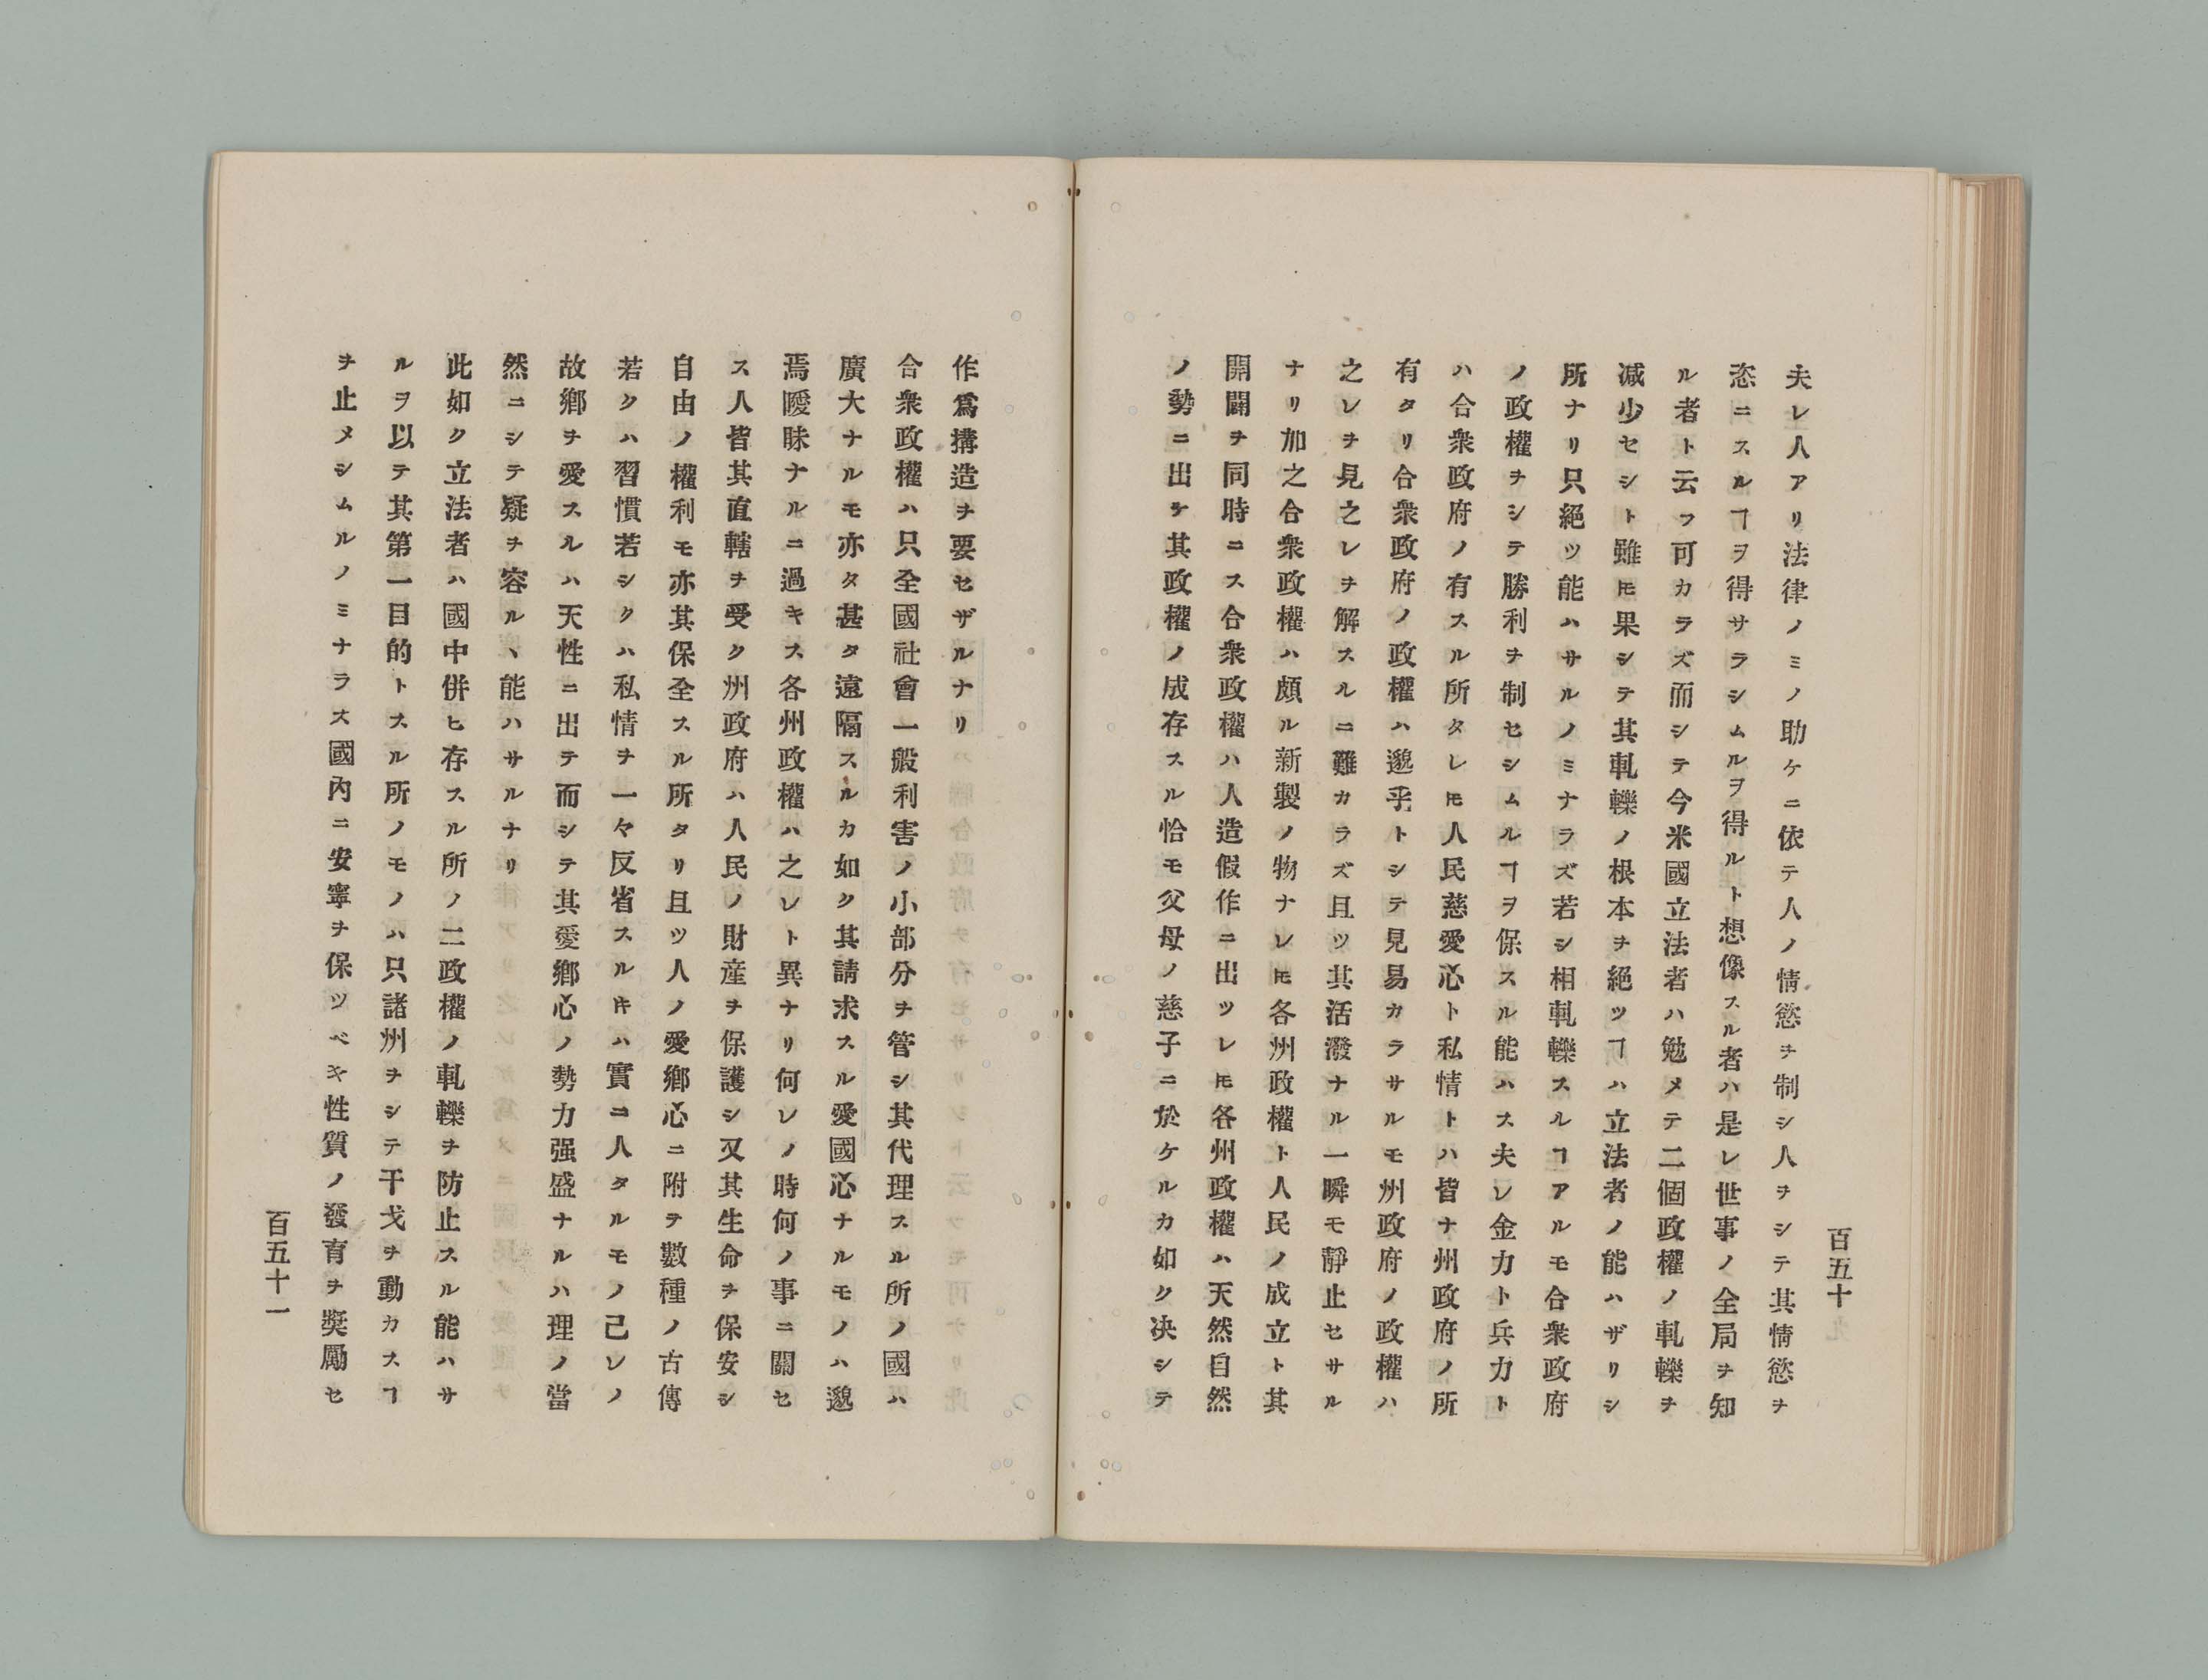 夫レ人アリ法律ノミノ助ケニ依テ人ノ情慾ヲ制シ人ヲシテ其情慾ヲ
恣ニスルヿヲ得サラシムルヲ得ルト想像スル者ハ是レ世事ノ全局ヲ知
ル者ト云フ可カラズ而シテ今米國立法者ハ勉メテ二個政權ノ軋轢ヲ
减少セシト雖𪜈果シテ其軋轢ノ根本ヲ絕ツヿハ立法者ノ能ハザリシ
所ナリ只絕ツ能ハサルノミナラズ若シ相軋轢スルヿアルモ合衆政府
ノ政權ヲシテ勝利ヲ制セシムルヿヲ保スル能ハス夫レ金力ト兵力ト
ハ合衆政府ノ有スル所タレ𪜈人民慈愛心ト私情トハ皆ナ州政府ノ所
有タリ合衆政府ノ政權ハ邈乎トシテ見易カラサルモ州政府ノ政權ハ
之レヲ見之レヲ解スルニ難カラズ且ツ其活潑ナル一瞬モ靜止セサル
ナリ加之合衆政權ハ頗ル新製ノ物ナレ𪜈各州政權ト人民ノ成立ト其
開闢ヲ同時ニス合衆政權ハ人造假作ニ出ツレ𪜈各州政權ハ天然自然
ノ勢ニ出ケ其政權ノ成存スル恰モ父母ノ慈子ニ於ケルカ如ク决シテ
百五十
作爲搆造ヲ要セザルナリ
合衆政權ハ只全國社會一般利害ノ小部分ヲ管シ其代理スル所ノ國ハ
廣大ナルモ亦タ甚タ遠隔スルカ如ク其請求スル愛國心ナルモノハ邈
焉曖昧ナルニ過キス各州政權ハ之レト異ナリ何レノ時何ノ事ニ關セ
ス人皆其直轄ヲ受ク州政府ハ人民ノ財產ヲ保護シ又其生命ヲ保安シ
自由ノ權利モ亦其保全スル所タリ且ツ人ノ愛鄕心ニ附テ數種ノ古傳
若クハ習慣若シクハ私情ヲ一々反省スルㇳキハ實ニ人タルモノ己レノ
故鄕ヲ愛スルハ天性ニ出テ而シテ其愛鄕心ノ勢力强盛ナルハ理ノ當
然ニシテ疑ヲ容ルヽ能ハサルナリ
此如ク立法者ハ國中併ヒ存スル所ノ二政權ノ軋轢ヲ防止スル能ハサ
ルヲ以テ其第一目的トスル所ノモノハ只諸州ヲシテ干戈ヲ動カスヿ
ヲ止メシムルノミナラス國內ニ安寧ヲ保ツベキ性質ノ發育ヲ奬勵セ
百五十一